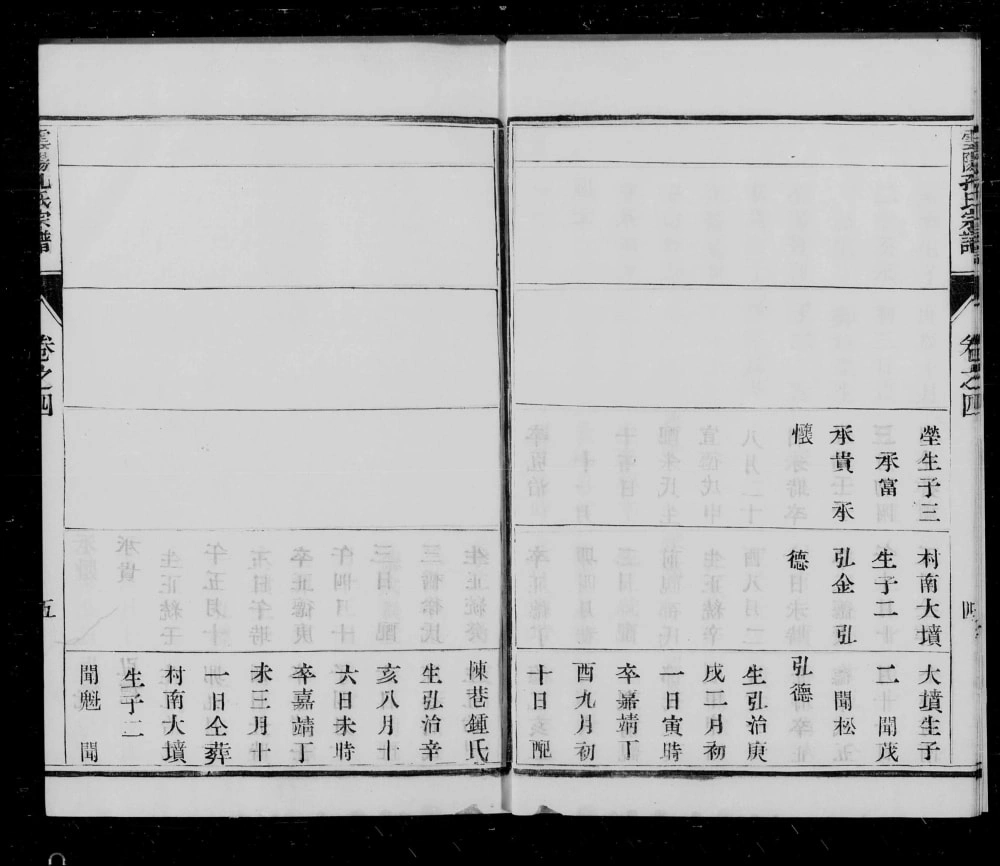 雲陽孔氏宗譜
卷之四
四
塋生子三
承富
承貴 承
懷
村南大墳
生子二
弘金 弘
德
大墳生子
二 聞茂
聞松
弘德
生弘治庚
戌二月初
一日寅時
卒嘉靖丁
酉九月初
十日 配
陳巷鍾氏
生弘治辛
亥八月十
六日未時
卒嘉靖丁
未三月十
一日仝葬
村南大墳
生子二
聞魁 聞
雲陽孔氏宗譜
卷之四
五